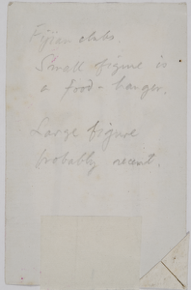 Fijian clubs
Small figure is
a food-hanger.
Large figure
probably recent.